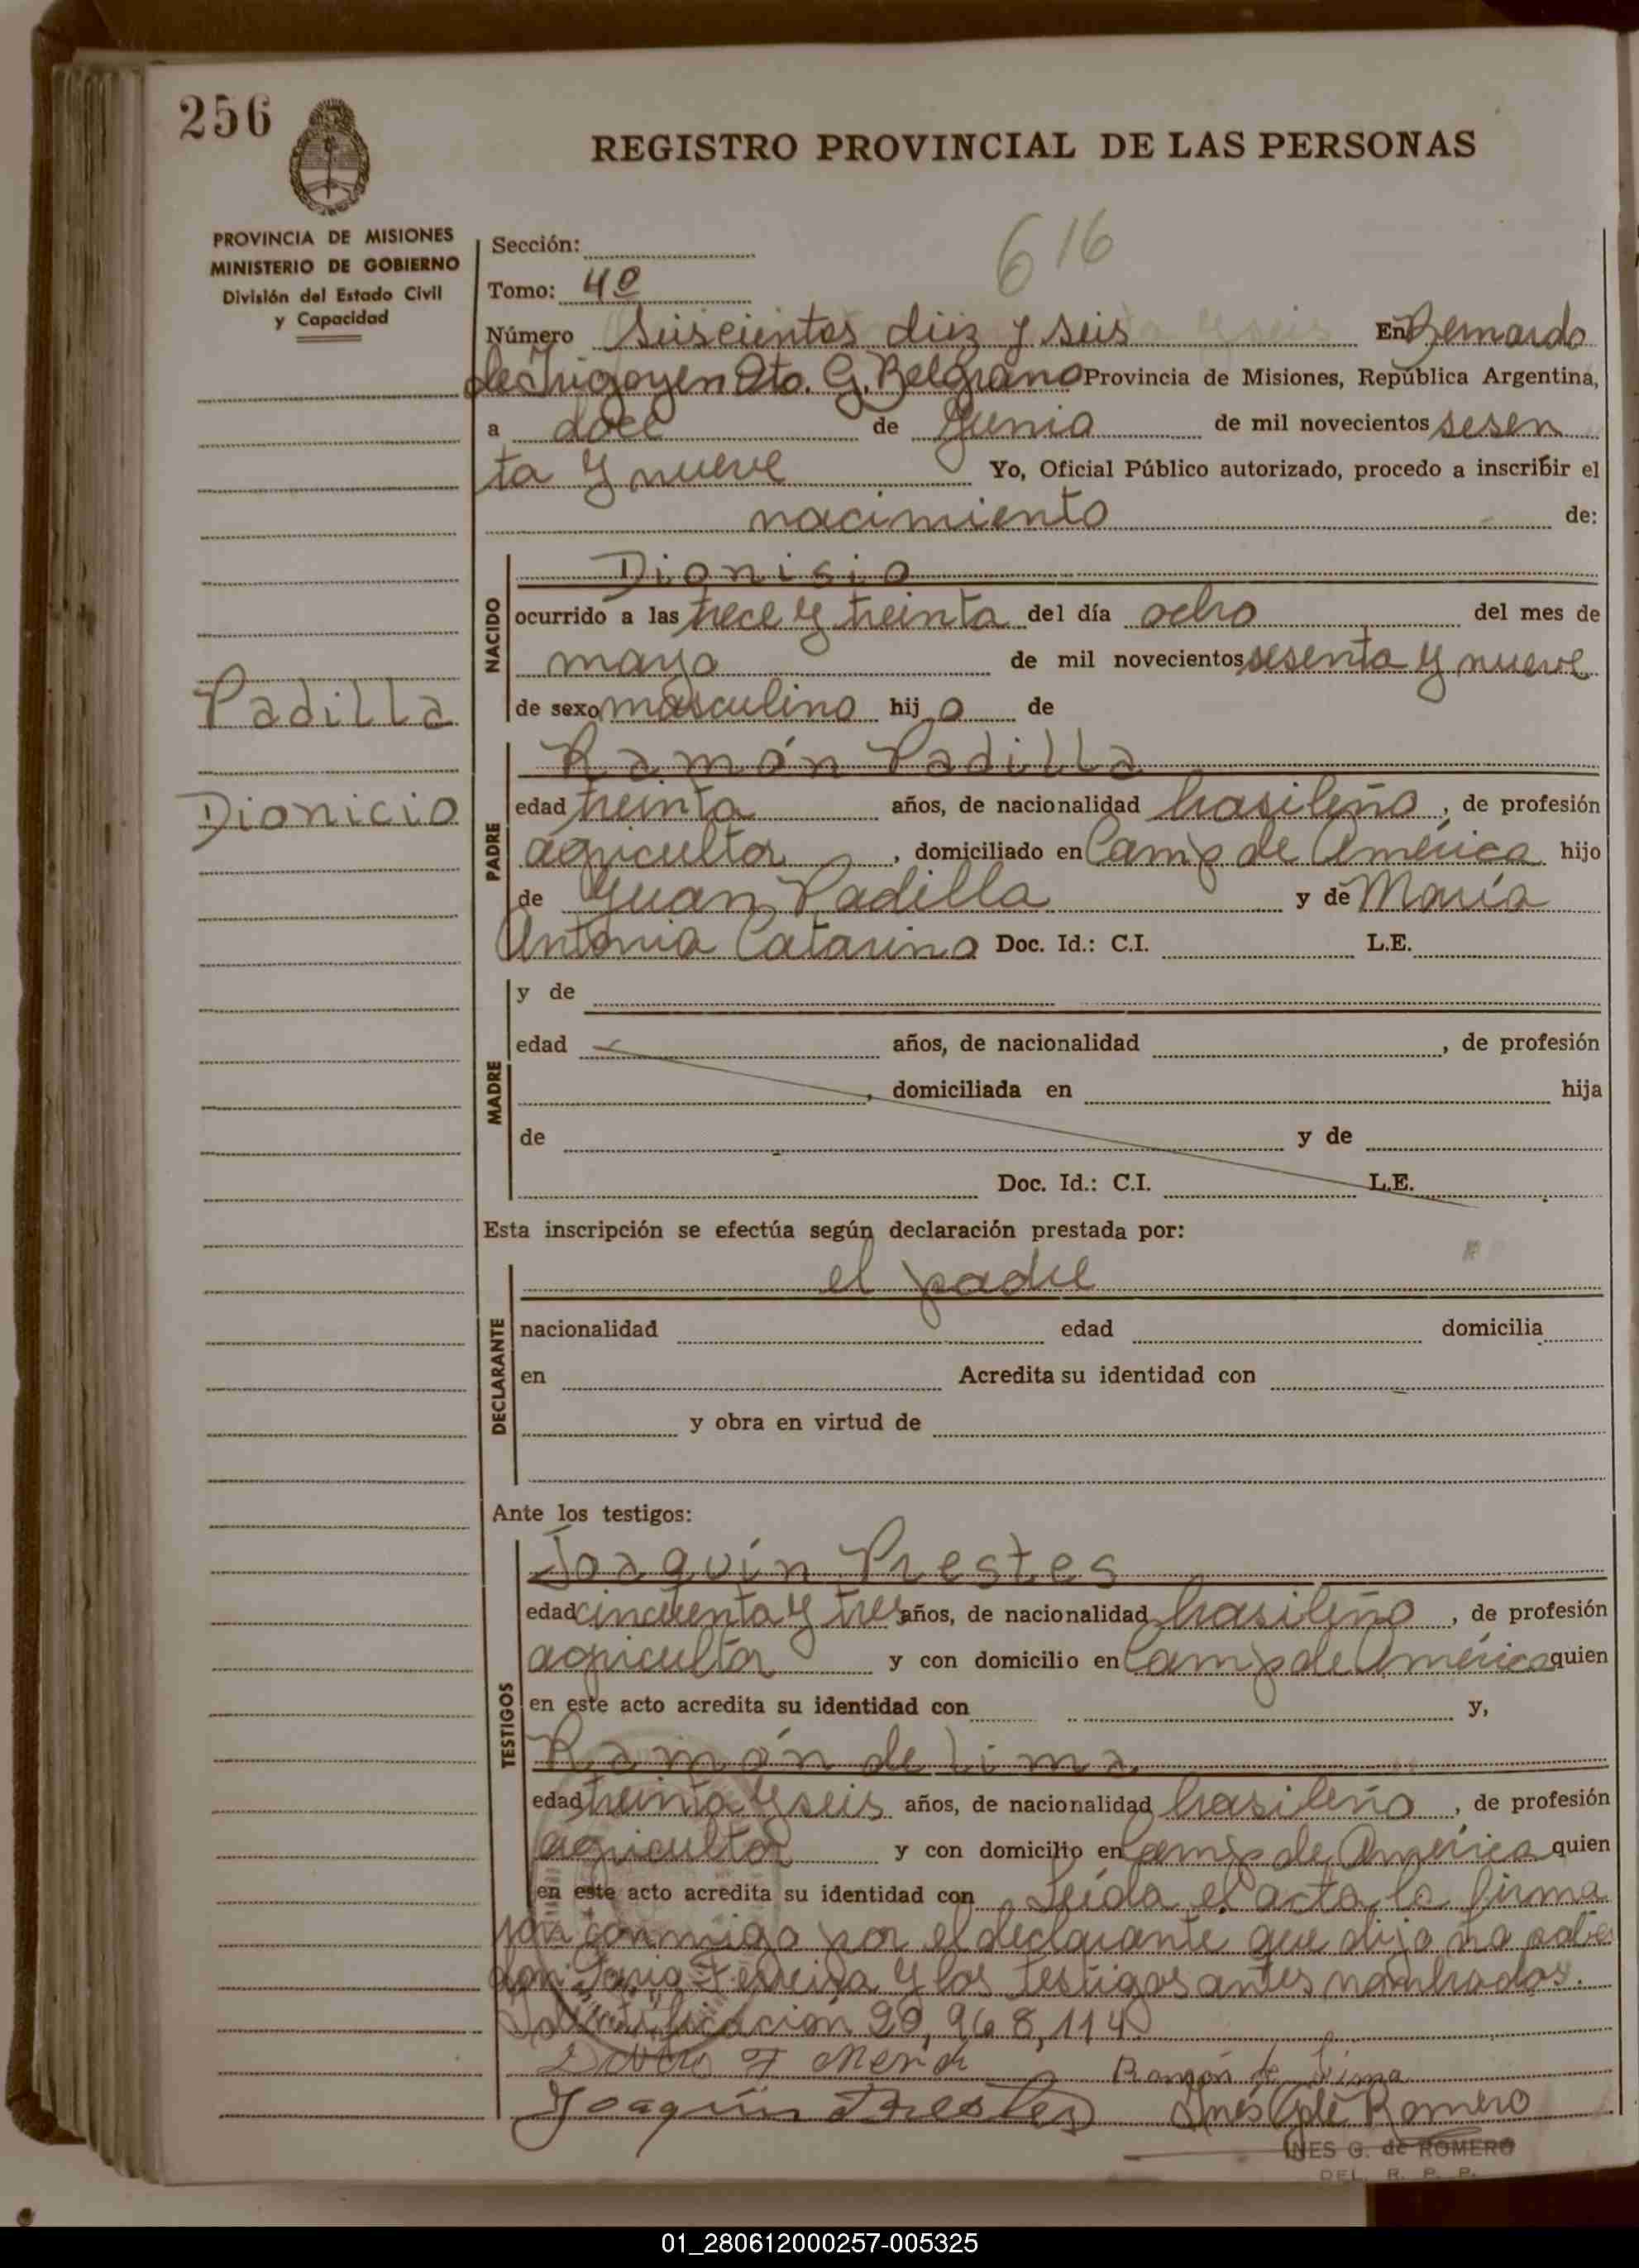 256
REGISTRO PROVINCIAL DE LAS PERSONAS
PROVINCIA DE MISIONES
MINISTERIO DE GOBIERNO
División del Estado Civil
y Capacidad
616
Sección:
Tomo: 4º
Número Seiscientos diez y seis En Bernardo
de Irigoyen Dto. G. Belgrano Provincia de Misiones, República Argentina,
a doce de Junio de mil novecientos sesen
ta y nueve Yo, Oficial Público autorizado, procedo a inscribir el
nacimiento de:
NACIDO
Dionisio
ocurrido a las trece y treinta del día ocho del mes de
mayo de mil novecientos sesenta y nueve
de sexo masculino hij o de
Padilla
Dionicio
PADRE
Ramón Padilla
edad treinta años, de nacionalidad brasileño, de profesión
agricultor, domiciliado en Camp de América hijo
de Juan Padilla y de María
Antonia Catarina Doc. Id.: C.I. L.E.
MADRE
y de
edad años, de nacionalidad , de profesión
, domiciliada en hija
de y de
Doc. Id.: C.I. L.E.
Esta inscripción se efectúa según declaración prestada por:
DECLARANTE
el padre
nacionalidad edad domicilia
en Acredita su identidad con
y obra en virtud de
Ante los testigos:
TESTIGOS
Joaquín Prestes
edad cincuenta y tres años, de nacionalidad brasileño, de profesión
agricultor y con domicilio en Camp de América quien
en este acto acredita su identidad con y,
Ramón de Lima
edad treinta y seis años, de nacionalidad brasileño, de profesión
agricultor y con domicilio en Camp de América quien
en este acto acredita su identidad con Leída el acta la firma
por conmigo por el declarante que dijo no sabe
don Ferreira y los testigos antes nombrados.
Identificación 20,968,114
Ramón de Lima
Joaquin Prestes Inés G de Romero
INES G. de ROMERO
DEL. R. P. P.
01_280612000257-005325